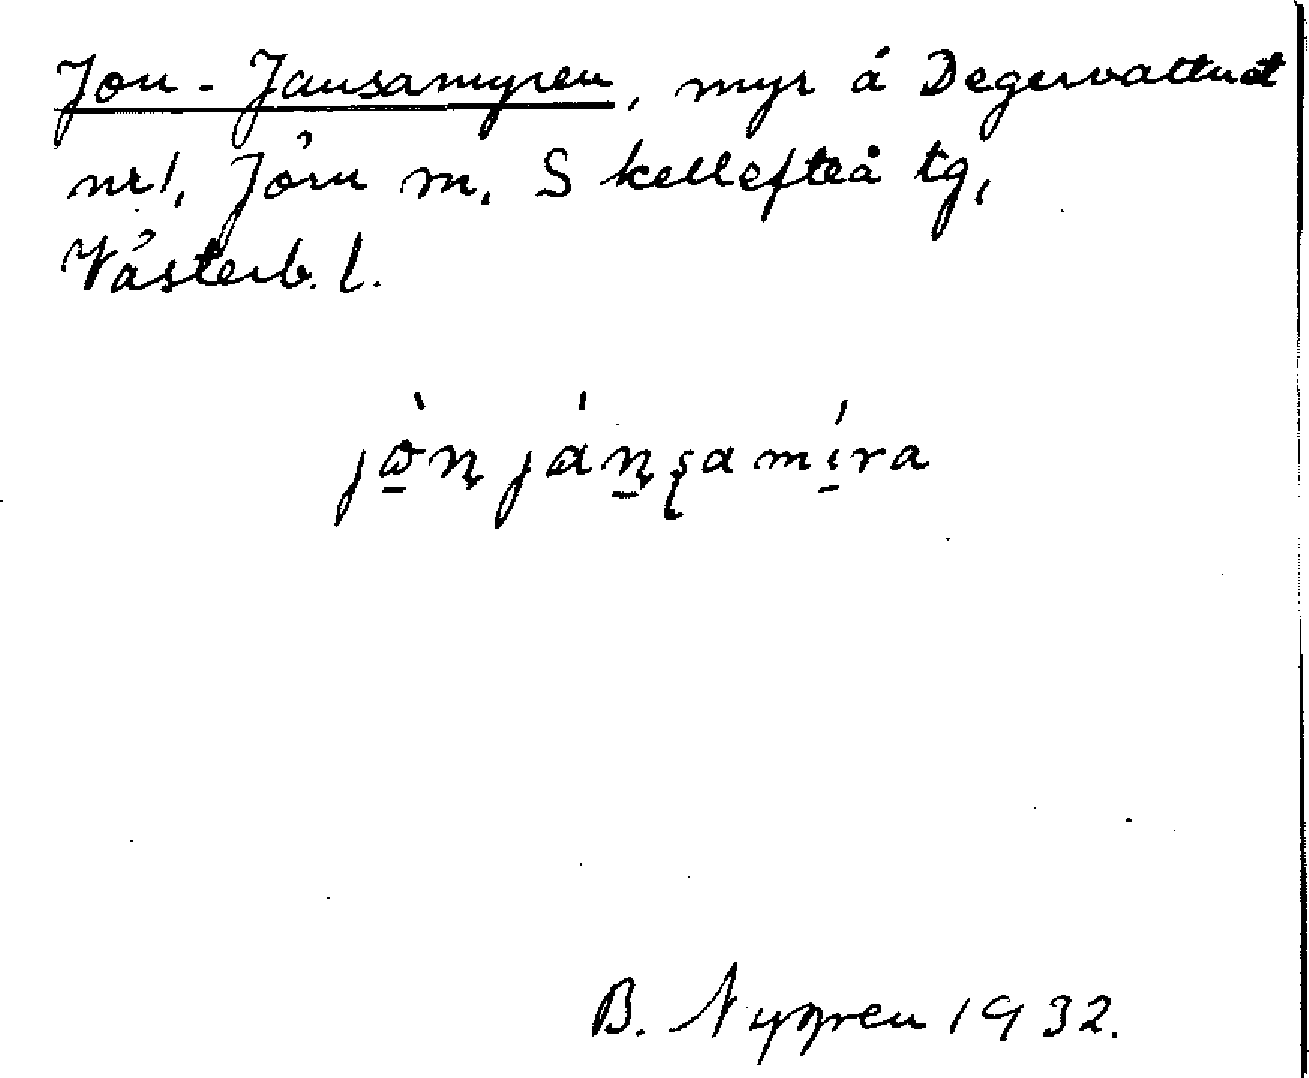 Jon-Jansamyren, myr å Degervattnet
nr 1, Jörn sn, Skellefteå tg,
Västerb. l.
jò̠n̨ já n̨̠s̨amí̠ra
B. Nygren 1932.